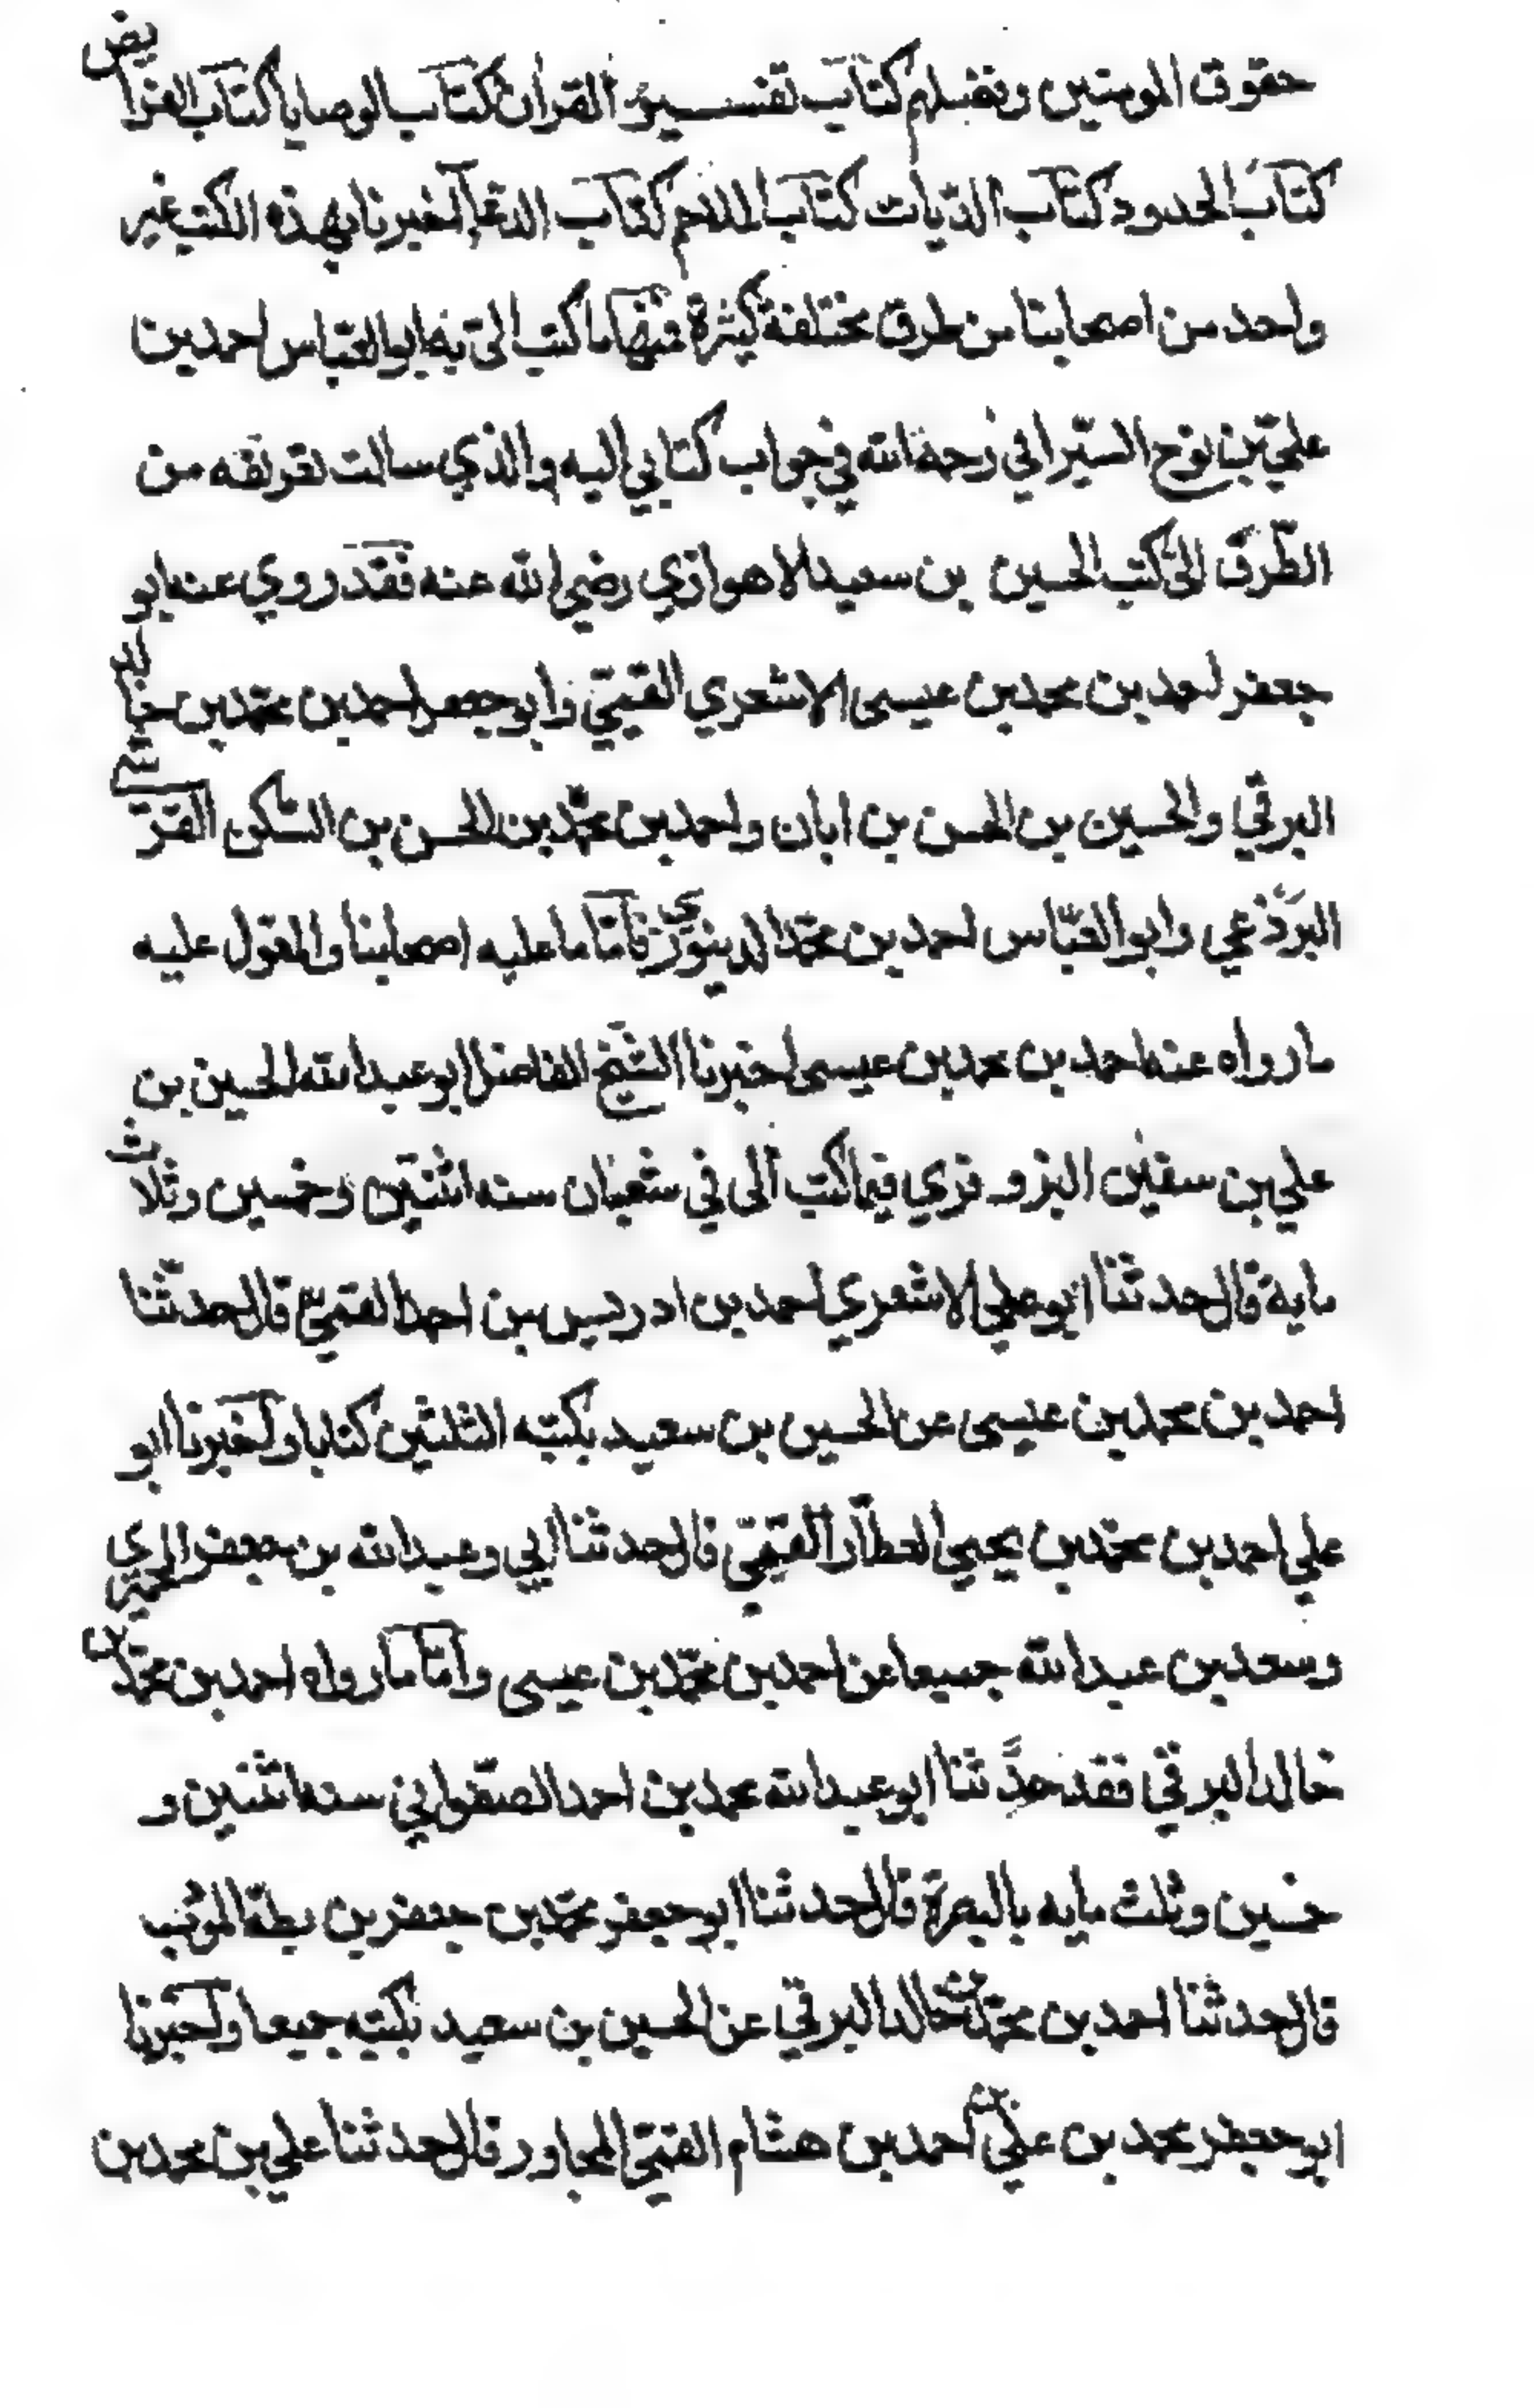 حقوق المومنين وفضلهم كتاب تفسير القران كتاب الوصايا كتاب الفرايض
كتاب الحدود كتاب الديات كتاب الملاحم كتاب الدعا اخبرنا بهذه الكتب غير
واحد من اصحابنا من طرق مختلفة كثيرة فمنها ما كتب الي به ابو العباس احمد بن
علي بن نوح السيرافي رحمه الله في جواب كتابي اليه والذي سالت تعريفه من
الطرق الى كتب الحسين بن سعيد الاهوازي رضي الله عنه فقد روي عنه ابو
جعفر احمد بن محمد بن عيسى الاشعري القمي وابو جعفر احمد بن محمد بن خالد
البرقي والحسين بن الحسن بن ابان واحمد بن محمد بن الحسن بن السكن القرشي
البرذعي وابو العباس احمد بن محمد الدينوري فاما ما عليه اصحابنا والمعول عليه
ما رواه عنه احمد بن محمد بن عيسى اخبرنا الشيخ الفاضل ابو عبد الله الحسين بن
علي بن سفين البزوفري فيما كتب الى في شعبان سنه اثنتين وخمسين وثلاث
ماية قال حدثنا ابو علي الاشعري احمد بن ادريس بن احمد القمي قال حدثنا
احمد بن محمد بن عيسى عن الحسين بن سعيد بكتبه الثلثين كتابا واخبرنا ابو
علي احمد بن محمد بن يحيى العطار القمي قال حدثنا ابي وعبد الله بن جعفر الحميري
وسعد بن عبد الله جميعا عن احمد بن محمد بن عيسى واما ما رواه احمد بن محمد بن
خالد البرقي فقد حدثنا ابو عبد الله محمد بن احمد الصفواني سنه اثنين و
خمسين وثلث مايه بالبصرة قال حدثنا ابو جعفر محمد بن جعفر بن بطة المودب
قال حدثنا احمد بن محمد بن خالد البرقي عن الحسين بن سعيد بكتبه جميعا واخبرنا
ابو جعفر محمد بن علي بن احمد بن هشام القمي المجاور قال حدثنا علي بن محمد بن